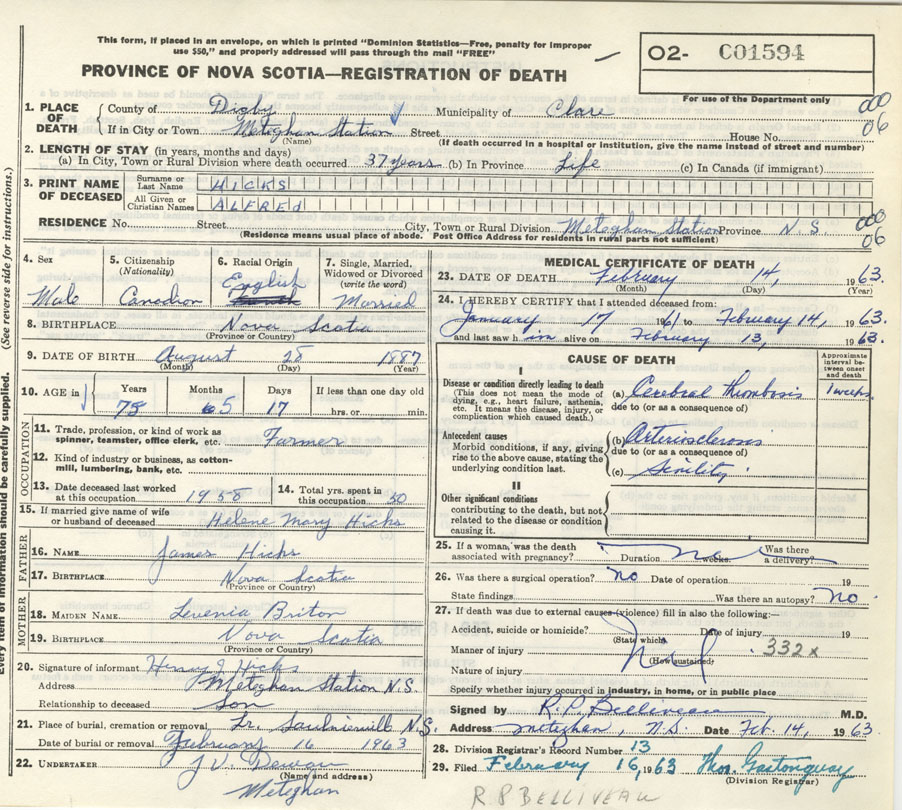 This form, if placed in an envelope, on which is printed "Dominion Statistics—Free, penalty for improper
use $50," and properly addressed will pass through the mail "FREE"
PROVINCE OF NOVA SCOTIA—REGISTRATION OF DEATH
O2- C01594
For use of the Department only
000
06
1. PLACE OF DEATH
County of Digby Municipality of Clare
If in City or Town Meteghan Station Street House No.
(Name) (If death occurred in a hospital or institution, give the name instead of street and number)
2. LENGTH OF STAY (in years, months and days)
(a) In City, Town or Rural Division where death occurred 37 years (b) In Province Life (c) In Canada (if immigrant)
3. PRINT NAME OF DECEASED
Surname or Last Name HICKS
All Given or Christian Names ALFRED
RESIDENCE No. Street City, Town or Rural Division Meteghan Station Province N.S.
(Residence means usual place of abode. Post Office Address for residents in rural parts not sufficient)
000
06
4. Sex Male
5. Citizenship (Nationality) Canadian
6. Racial Origin English
7. Single, Married, Widowed or Divorced (write the word) Married
8. BIRTHPLACE Nova Scotia
(Province or Country)
9. DATE OF BIRTH August 28 1887
(Month) (Day) (Year)
10. AGE in Years 75 Months 5 Days 17 If less than one day old hrs. or min.
OCCUPATION
11. Trade, profession, or kind of work as spinner, teamster, office clerk, etc. Farmer
12. Kind of industry or business, as cotton-mill, lumbering, bank, etc.
13. Date deceased last worked at this occupation 1958
14. Total yrs. spent in this occupation 50
15. If married give name of wife or husband of deceased Helene Mary Hicks
FATHER
16. NAME James Hicks
17. BIRTHPLACE Nova Scotia
(Province or Country)
MOTHER
18. MAIDEN NAME Levenia Briton
19. BIRTHPLACE Nova Scotia
(Province or Country)
20. Signature of informant Henry J Hicks
Address Meteghan Station N.S.
Relationship to deceased Son
21. Place of burial, cremation or removal Lr. Saulnierville N.S.
Date of burial or removal February 16 1963
22. UNDERTAKER
(Name and address)
Meteghan
MEDICAL CERTIFICATE OF DEATH
23. DATE OF DEATH February 14, 1963.
(Month) (Day) (Year)
24. I HEREBY CERTIFY that I attended deceased from:
January 17 1961 to February 14, 1963.
and last saw him alive on February 13, 1963.
CAUSE OF DEATH
Approximate interval between onset and death
I
Disease or condition directly leading to death
(This does not mean the mode of dying, e.g., heart failure, asthenia, etc. It means the disease, injury, or complication which caused death.)
(a) Cerebral thrombosis
due to (or as a consequence of)
Antecedent causes
Morbid conditions, if any, giving rise to the above cause, stating the underlying condition last.
(b) Arteriosclerosis
due to (or as a consequence of)
(c) Sinility
II
Other significant conditions
contributing to the death, but not related to the disease or condition causing it.
25. If a woman, was the death associated with pregnancy? Duration No weeks. Was there a delivery?
26. Was there a surgical operation? no Date of operation 19
State findings Was there an autopsy? no.
27. If death was due to external causes (violence) fill in also the following:—
Accident, suicide or homicide? Date of injury 19
(State which)
Manner of injury 332x
(How sustained)
Nature of injury
Specify whether injury occurred in industry, in home, or in public place
Signed by R.P. Belliveau M.D.
Address Meteghan, N.S. Date Feb. 14, 1963
28. Division Registrar's Record Number 13
29. Filed February 16, 1963
(Division Registrar)
R P BELLIVEAU
(See reverse side for instructions.)
Every item of information should be carefully supplied.